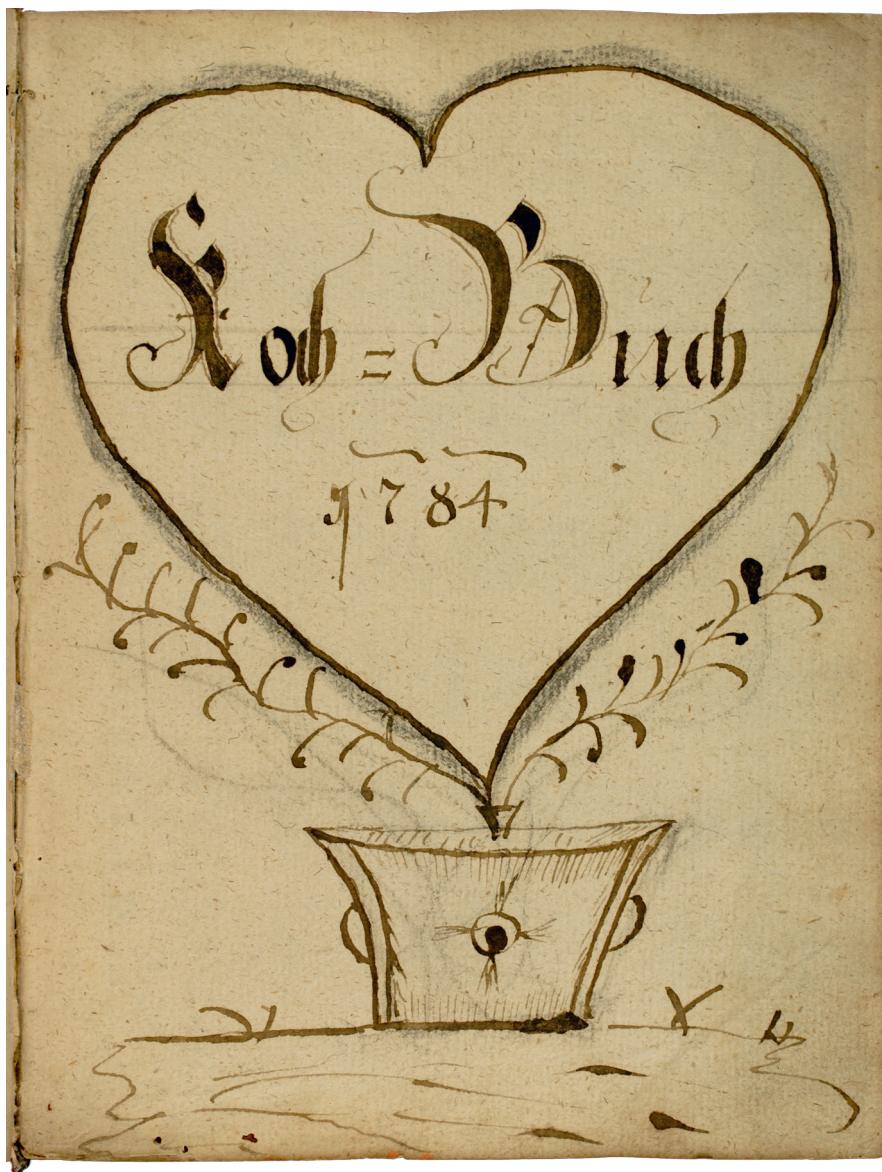 Koch = Buch
1784